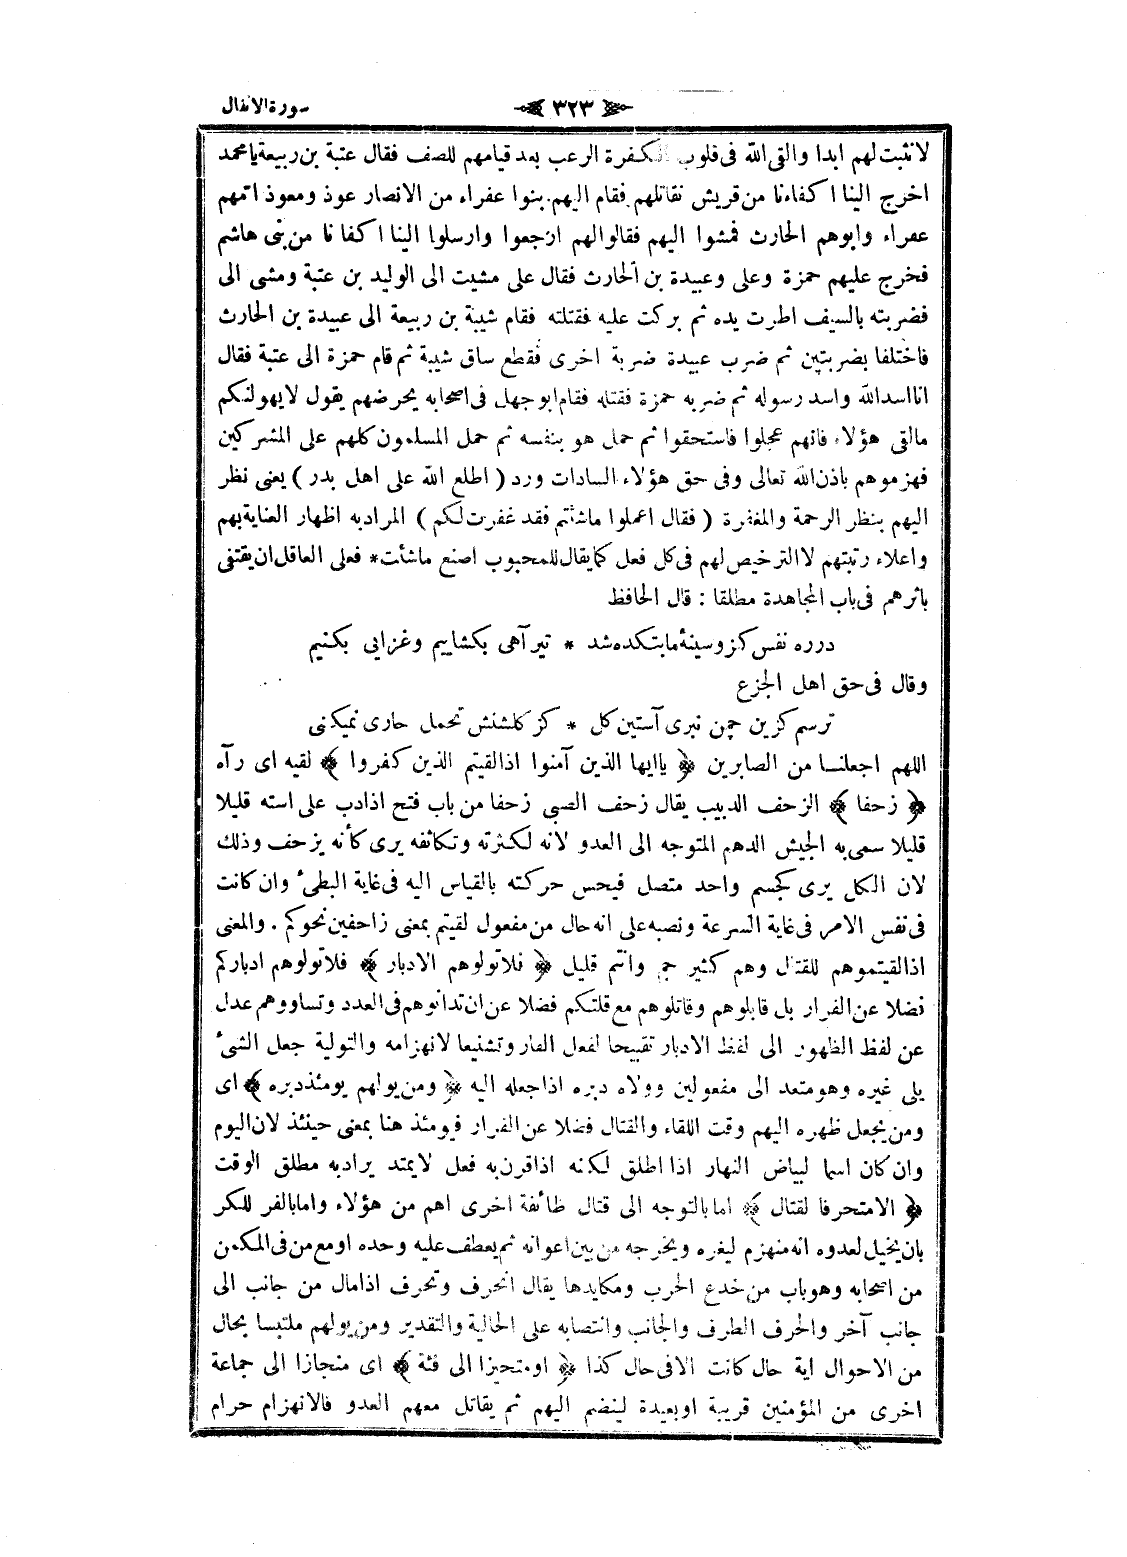 سورة الانفال
﴿ ٣٢٣ ﴾
لا نثبت لهم ابدا والقى الله فى قلوب الكفرة الرعب بعد قيامهم للصف فقال عتبة بن ربيعة يا محمد
اخرج الينا اكفاءنا من قريش نقاتلهم فقام اليهم بنوا عفراء من الانصار عوذ ومعوذ امهم
عفراء وابوهم الحارث فمشوا اليهم فقالوا لهم ارجعوا وارسلوا الينا اكفا نا من بنى هاشم
فخرج عليهم حمزة وعلى وعبيدة بن الحارث فقال على مشيت الى الوليد بن عتبة ومشى الى
فضربته بالسيف اطرت يده ثم بركت عليه فقتلته فقام شيبة بن ربيعة الى عبيدة بن الحارث
فاختلفا بضربتين ثم ضرب عبيدة ضربة اخرى فقطع ساق شيبة ثم قام حمزة الى عتبة فقال
انا اسد الله واسد رسوله ثم ضربه حمزة فقتله فقام ابو جهل فى اصحابه يحرضهم يقول لا يهولنكم
مالقى هؤلاء فانهم عجلوا فاستحقوا ثم حمل هو بنفسه ثم حمل المسلمون كلهم على المشركين
فهزموهم باذن الله تعالى وفى حق هؤلاء السادات ورد ( اطلع الله على اهل بدر ) يعنى نظر
اليهم بنظر الرحمة والمغفرة ( فقال اعملوا ماشئتم فقد غفرت لكم ) المراد به اظهار العناية بهم
واعلاء رتبتهم لا الترخيص لهم فى كل فعل كما يقال للمحبوب اصنع ماشأت * فعلى العاقل ان يقتفى
باثرهم فى باب المجاهدة مطلقا : قال الحافظ
درره نفس كزو سينۀ ما بتكده شد * تير آهى بكشاييم وغزايى بكنيم
وقال فى حق اهل الجزع
ترسم كزين چمن نبرى آستين كل * كز كلشنش تحمل خارى نميكنى
اللهم اجعلنا من الصابرين ﴿ يا ايها الذين آمنوا اذا لقيتم الذين كفروا ﴾ لقيه اى رآه
﴿ زحفا ﴾ الزحف الدبيب يقال زحف الصبى زحفا من باب فتح اذا دب على استه قليلا
قليلا سمى به الجيش الدهم المتوجه الى العدو لانه لكثرته وتكاثفه يرى كأنه يزحف وذلك
لان الكل يرى كجسم واحد متصل فيحس حركته بالقياس اليه فى غاية البطئ وان كانت
فى نفس الامر فى غاية السرعة ونصبه على انه حال من مفعول لقيتم بمعنى زاحفين نحوكم . والمعنى
اذا لقيتموهم للقتال وهم كثير جم وانتم قليل ﴿ فلا تولوهم الادبار ﴾ فلا تولوهم ادباركم
فضلا عن الفرار بل قابلوهم وقاتلوهم مع قلتكم فضلا عن ان تدانوهم فى العدد وتساووهم عدل
عن لفظ الظهور الى لفظ الادبار تقبيحا لفعل الفار وتشنيعا لانهزامه والتولية جعل الشئ
يلى غيره وهو متعد الى مفعولين وولاه دبره اذا جعله اليه ﴿ ومن يولهم يومئذ دبره ﴾ اى
ومن يجعل ظهره اليهم وقت اللقاء والقتال فضلا عن الفرار فيومئذ هنا بمعنى حينئذ لان اليوم
وان كان اسما لبياض النهار اذا اطلق لكنه اذا قرن به فعل لا يمتد يراد به مطلق الوقت
﴿ الا متحرفا لقتال ﴾ اما بالتوجه الى قتال طائفة اخرى اهم من هؤلاء واما بالفر للكر
بان يخيل لعدوه انه منهزم ليغره ويخرجه من بين اعوانه ثم يعطف عليه وحده او مع من فى المكمن
من اصحابه وهو باب من خدع الحرب ومكايدها يقال انحرف وتحرف اذا مال من جانب الى
جانب آخر والحرف الطرف والجانب وانتصابه على الحالية والتقدير ومن يولهم ملتبسا بحال
من الاحوال اية حال كانت الا فى حال كذا ﴿ او متحيزا الى فئة ﴾ اى منحازا الى جماعة
اخرى من المؤمنين قريبة او بعيدة لينضم اليهم ثم يقاتل معهم العدو فالانهزام حرام